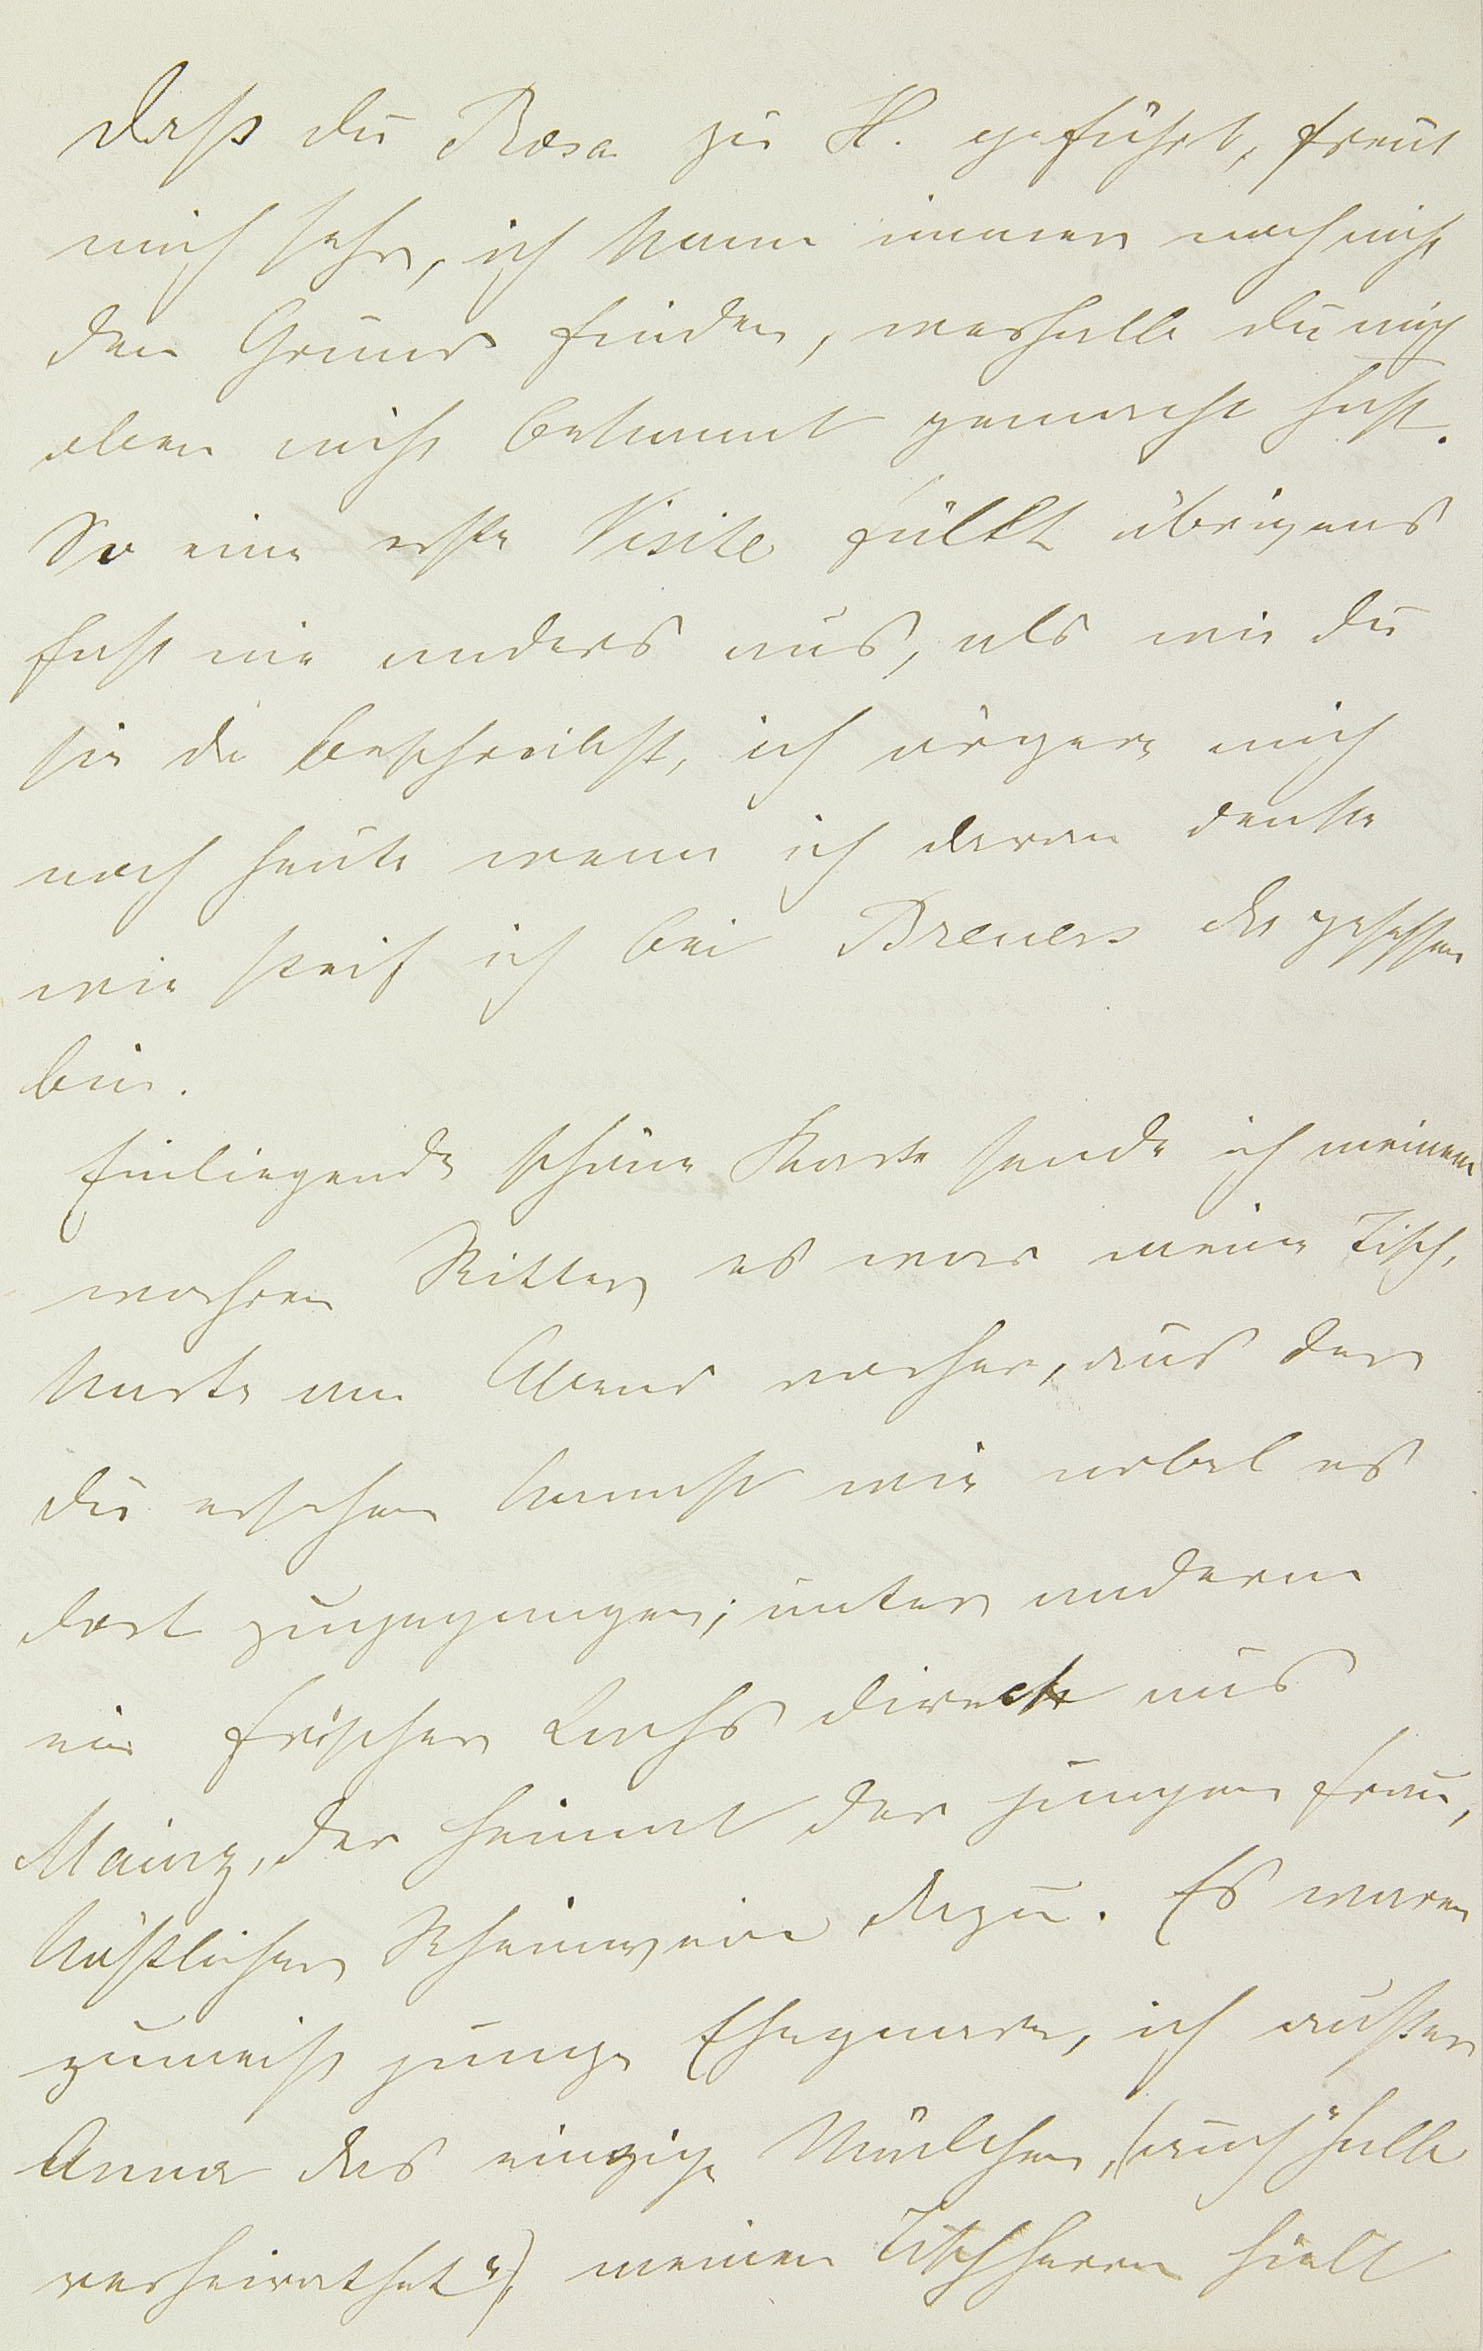 Daß Du Rosa zu H. geführt, freut
mich sehr, ich kann immer noch nicht
den Grund finden, weshalb Du mich
oben nicht bekannt gemacht hast.
So eine erste Visite fällt übrigens
fast nie anders aus, als wie Du
sie da beschreibst, ich ärgere mich
noch heute wenn ich daran denke
wie steif ich bei Brewers da gesessen
bin.
Einliegende schöne Karte sende ich meinem
wahren Ritter, es war meine Tisch-
karte am Abend vorher, aus der
Du ersehen kannst wie nobel es
dort zugegangen; unter anderm
ein frischer Lachs direckt aus
Mainz, der Heimat der jungen Frau,
köstlicher Rheinwein dazu. Es waren
zumeist junge Ehepaare, ich außer
Anna das einzige Mädchen, (auch "halb
verheirathet"), meinen Tischherrn hielt